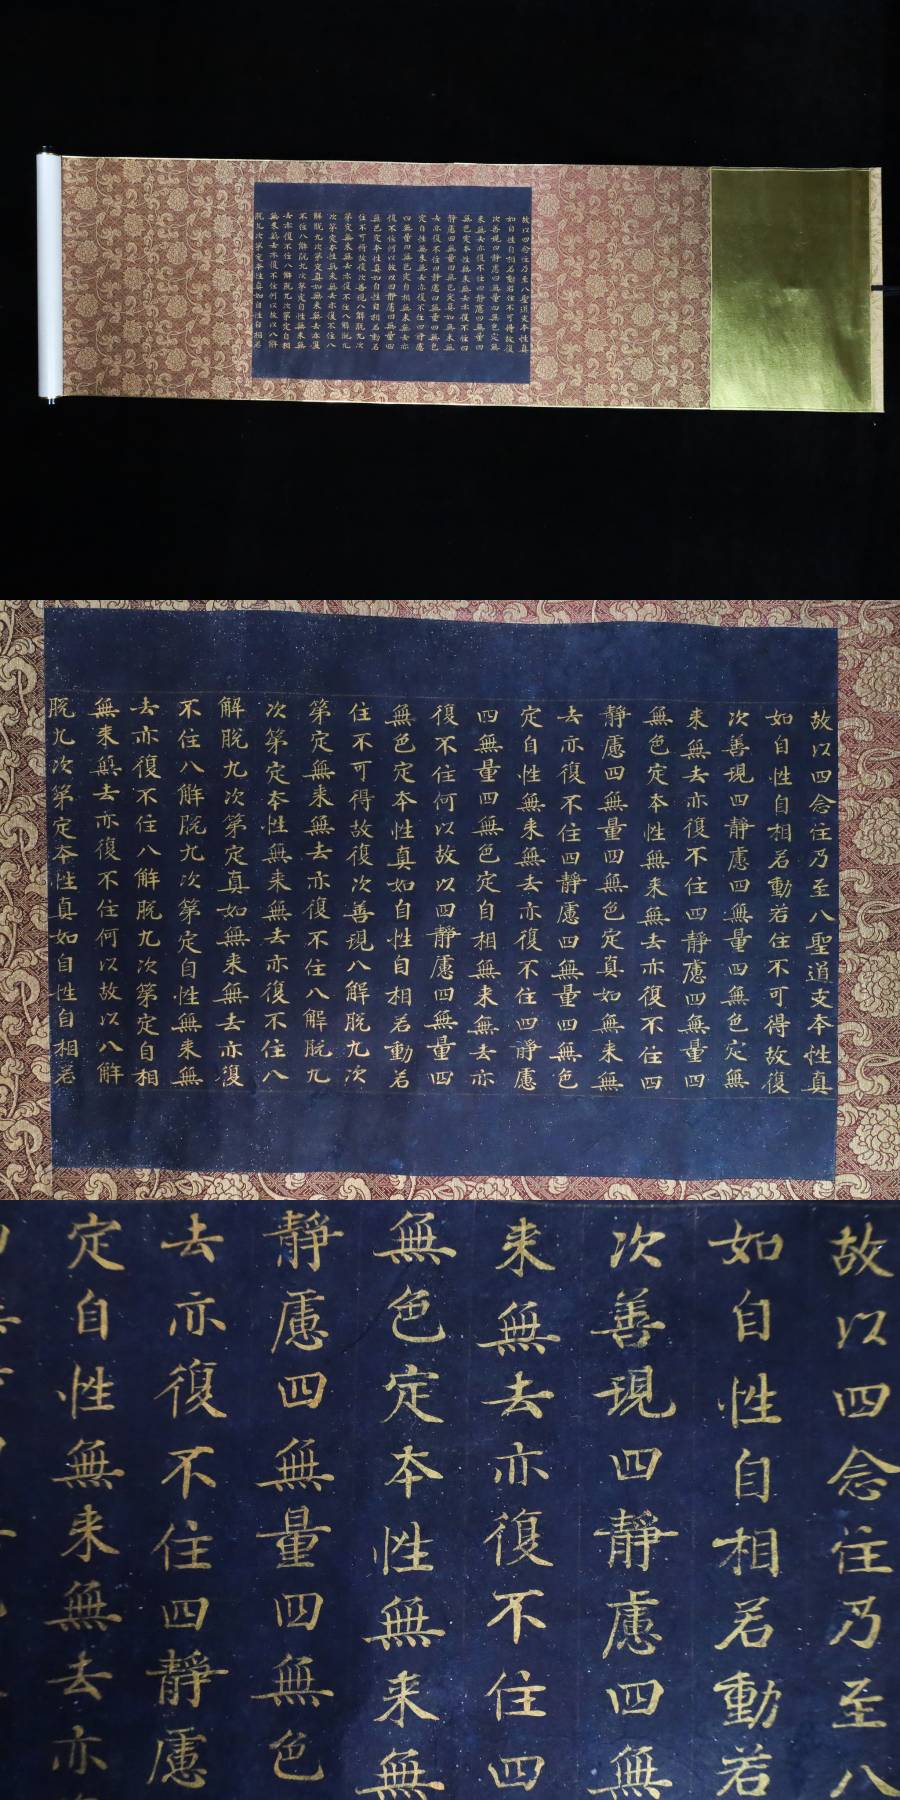 故以四念住乃至八聖道支本性真
如自性自相若動若住不可得故復
次善現四靜慮四無量四無色定無
来無去亦復不住四靜慮四無量四
無色定本性無来無去亦復不住四
靜慮四無量四無色定真如無来無
去亦復不住四靜慮四無量四無色
定自性無来無去亦復不住四靜慮
四無量四無色定自相無来無去亦
復不住何以故以四靜慮四無量四
無色定本性真如自性自相若動若
住不可得故復次善現八解脫九次
第定無来無去亦復不住八解脫九
次第定本性無来無去亦復不住八
解脫九次第定真如無来無去亦復
不住八解脫九次第定自性無来無
去亦復不住八解脫九次第定自相
無来無去亦復不住何以故以八解
脫九次第定本性真如自性自相若